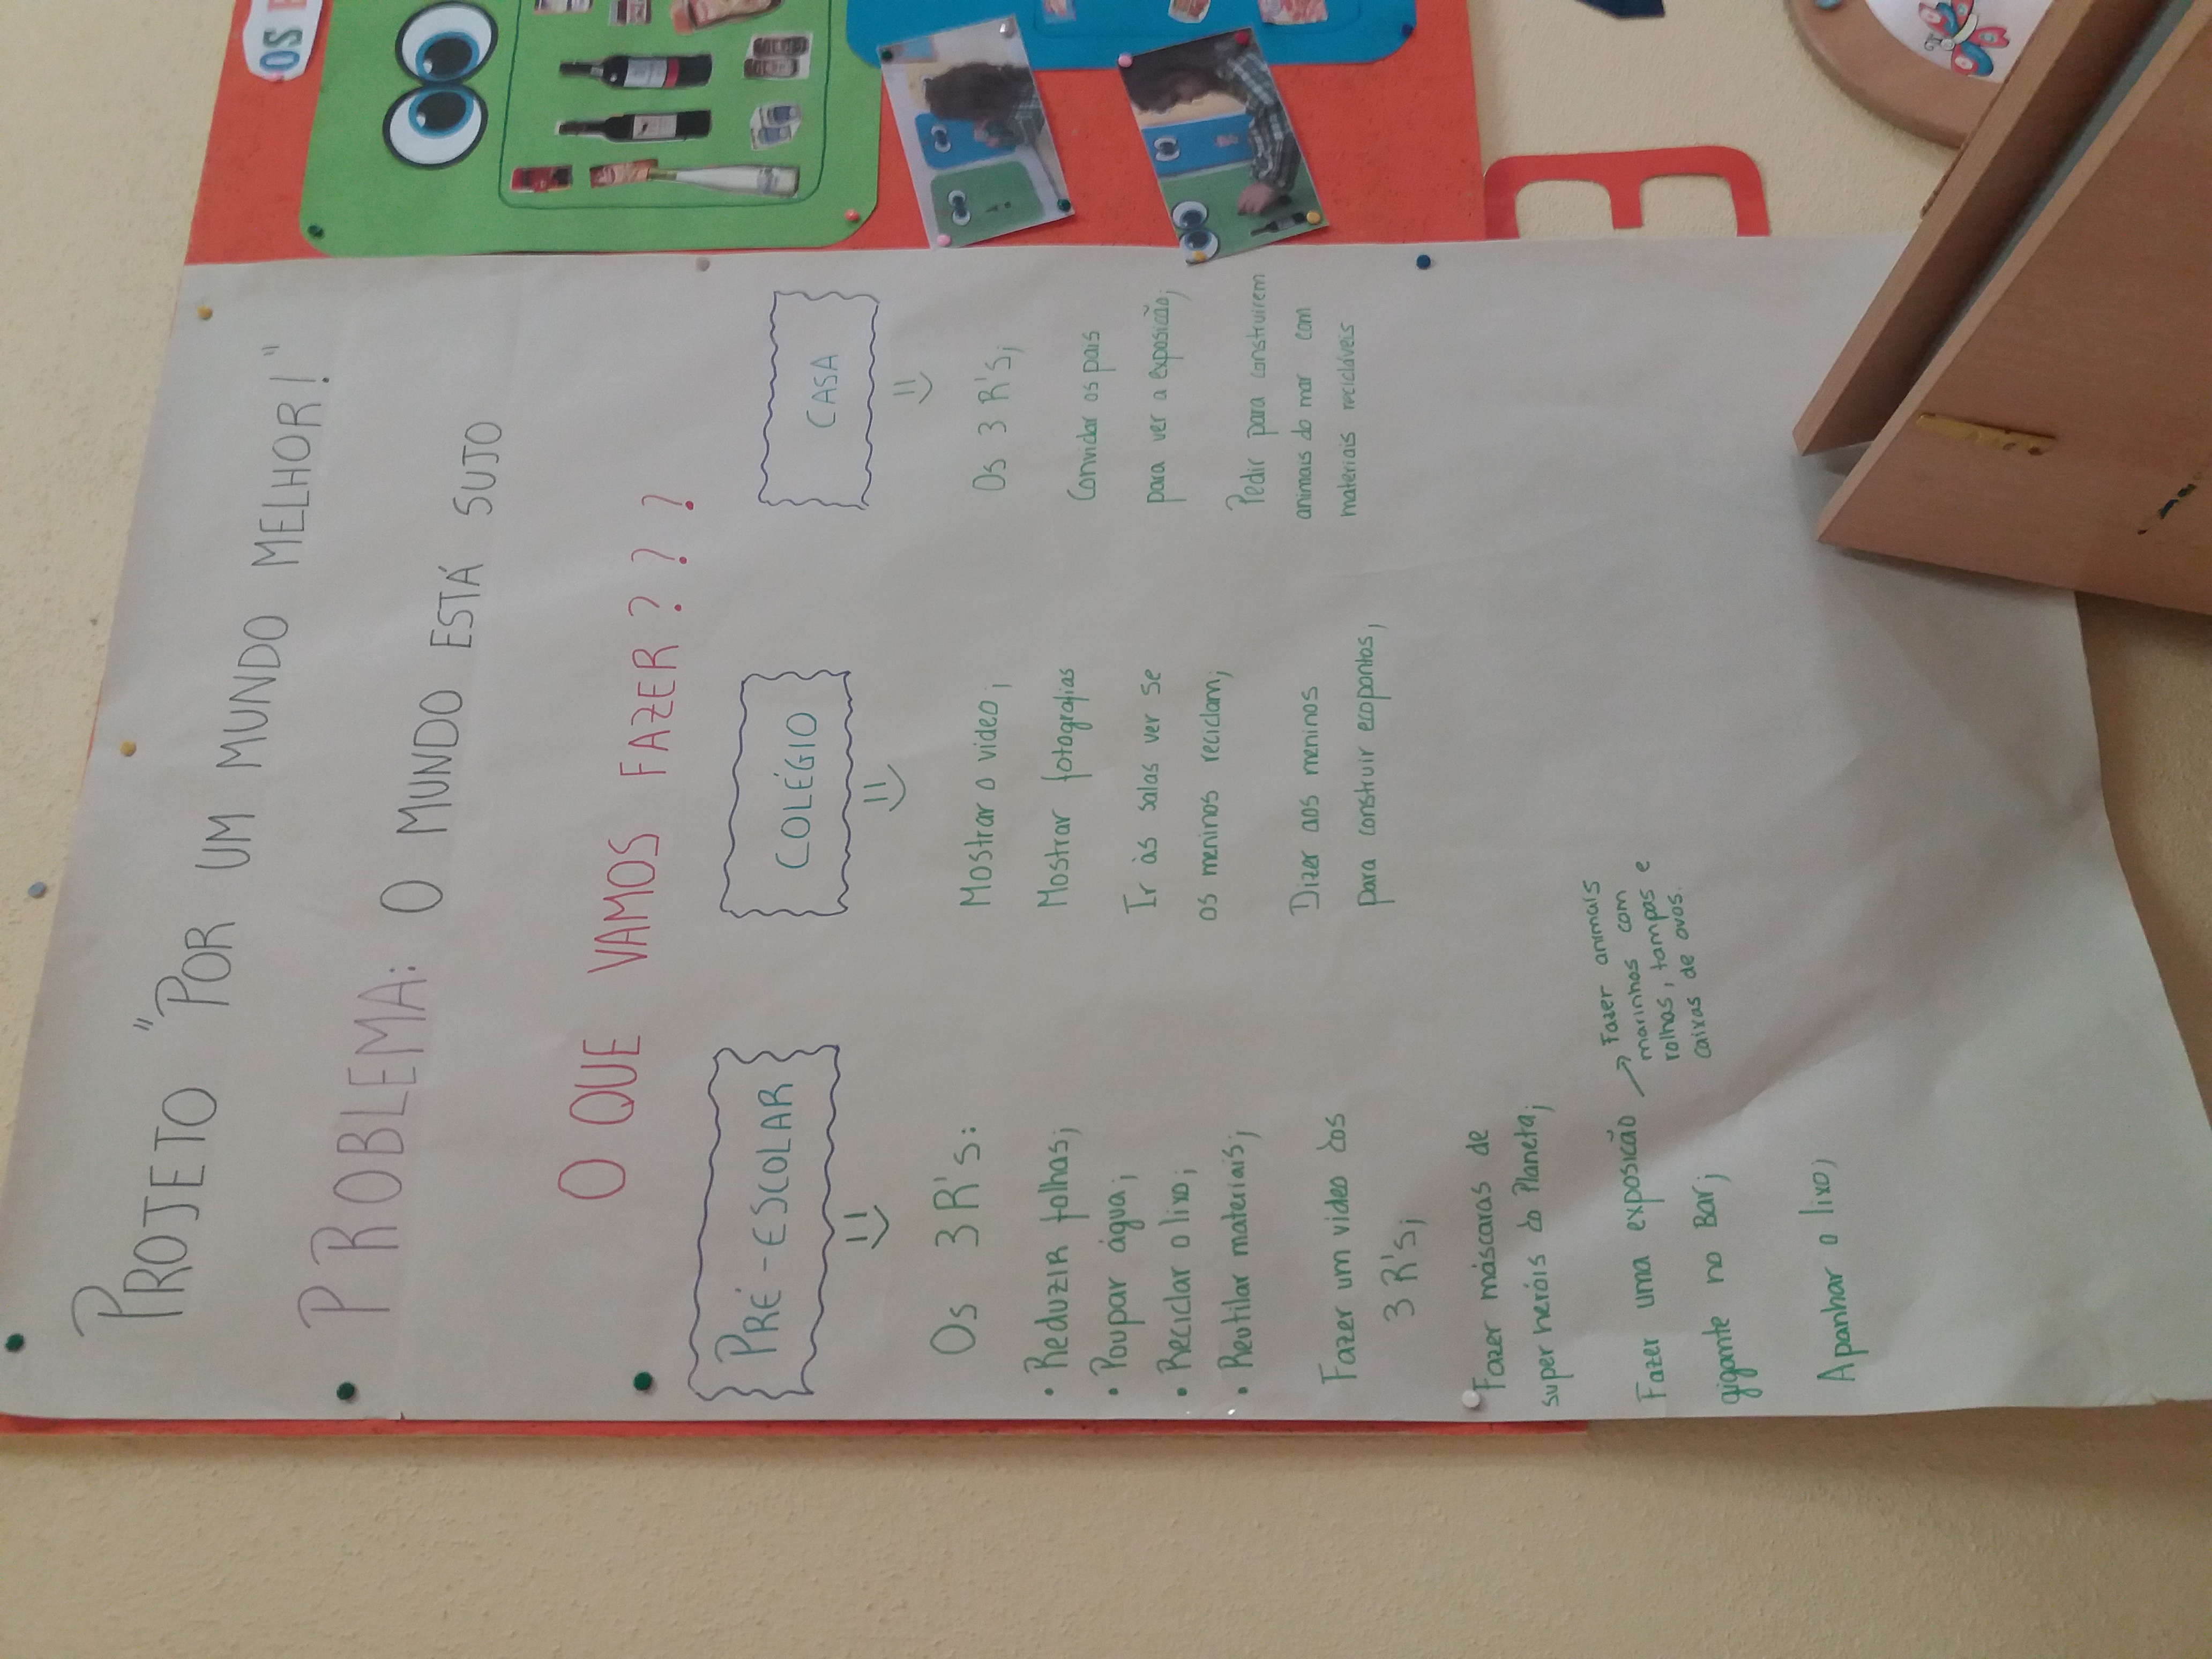 PROJETO "POR UM MUNDO MELHOR!"
PROBLEMA: O MUNDO ESTÁ SUJO
O QUE VAMOS FAZER???
PRÉ-ESCOLAR
Os 3 R's:
• REDUZIR folhas;
• Poupar água;
• Reciclar o lixo;
• Reutilar materiais;
Fazer um video dos
3 R's;
Fazer máscaras de
super heróis do Planeta;
Fazer uma exposição
gigante no Bar;
→ Fazer animais
marinhos com
rolhas, tampas e
caixas de ovos.
Apanhar o lixo;
COLÉGIO
Mostrar o video;
Mostrar fotografias
Ir às salas ver se
os meninos reciclam;
Dizer aos meninos
para construir ecopontos;
CASA
Os 3 R's;
Convidar os pais
para ver a exposição;
Pedir para construirem
animais do mar com
materiais recicláveis
OS
E